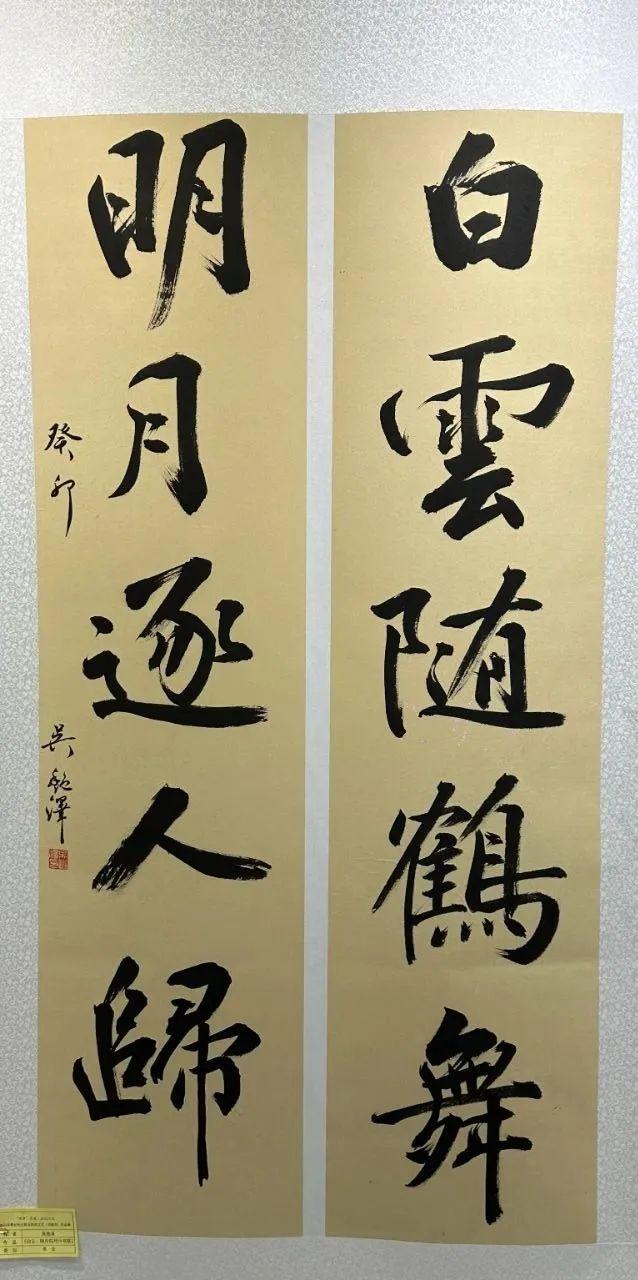 白雲随鶴舞
明月逐人歸
癸卯
吳
澤